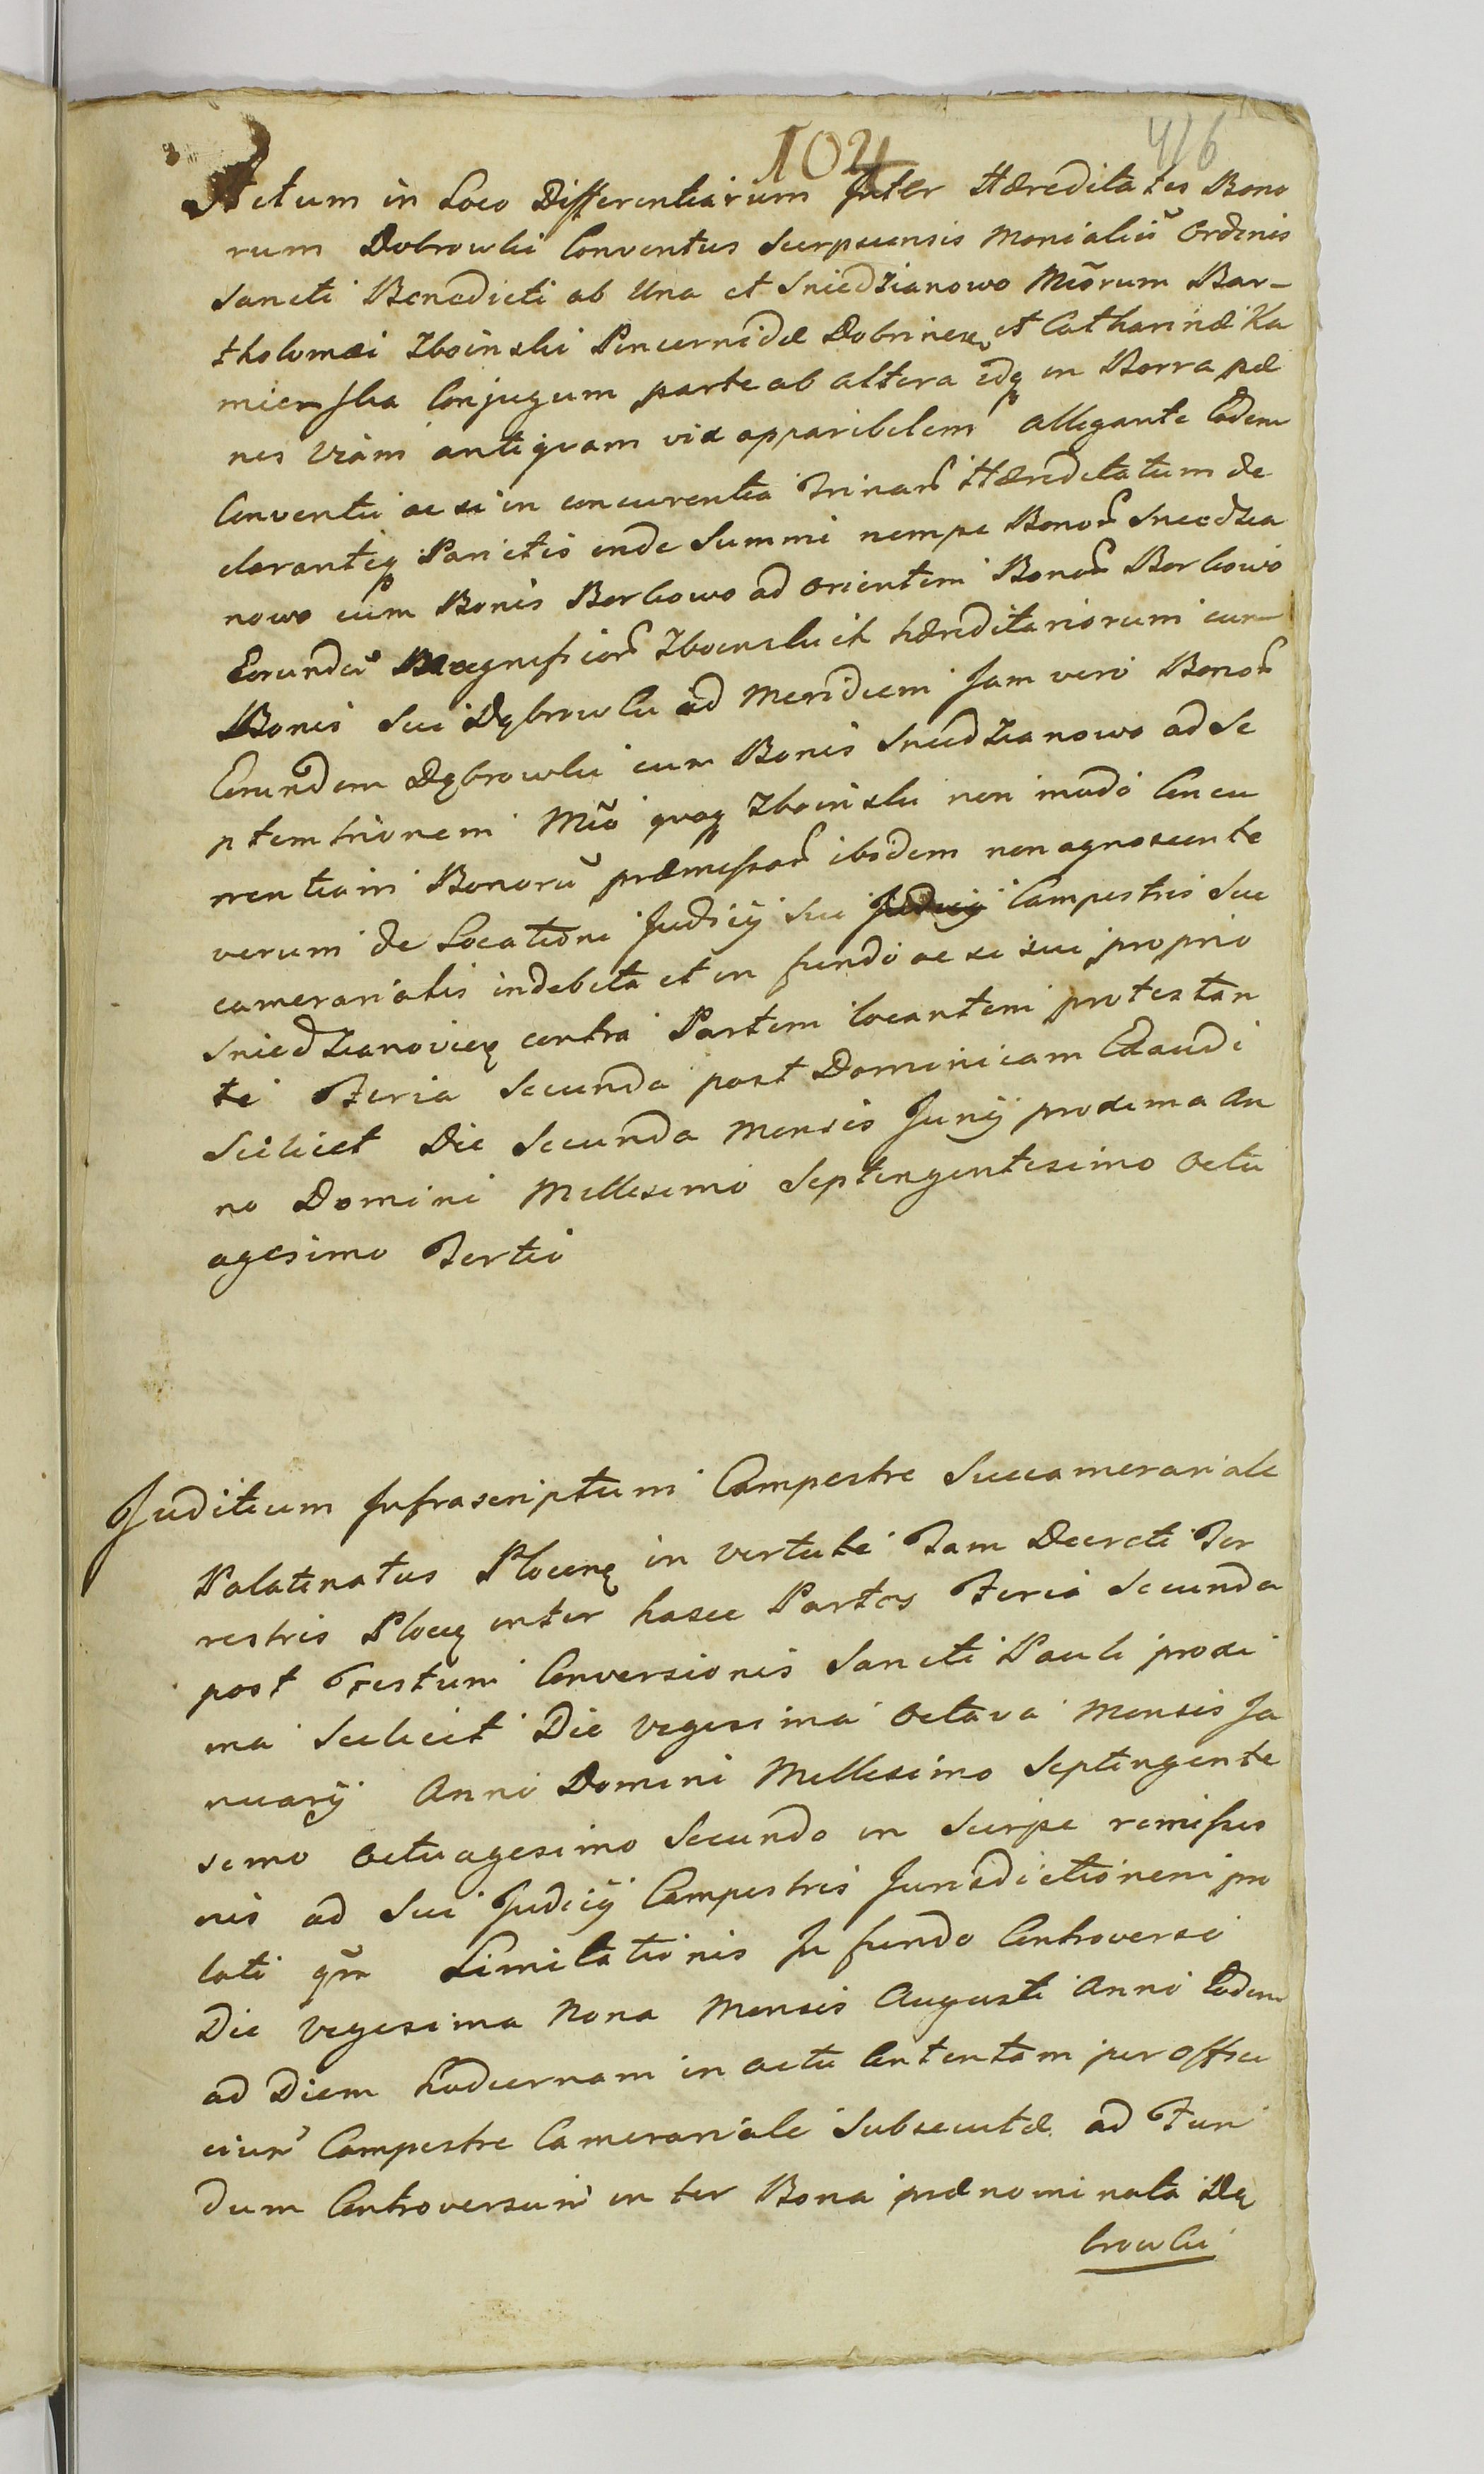 104
416
Actum in Loco Differentiarum Inter Hæreditates Bono
rum Dobrowki Conventus Scerpscensis Monialiũ Ordinis
Sancti Benedicti ab Una et Sniedzianowo Mcõrum Bar-
tholomæi Zboinski Pincernidæ Dobrinen, et Catharinæ Ka
mienska Conjugum parte ab altera idq in Borra pæ
nes Viam antiquam vix apparibilem allegante Eodem
Conventu ac si in concurentia Trinar Hæreditatum de
clarantiq Parietis inde Summi nempe Bonor Sniedzia
nowo cum Bonis Borkowo ad Orientem Bonor Borkowo
Eorundem Magnificor Zboinskich hæreditariorum cum
Bonis Sui Dębrowki ad Meridiem Jam vero Bonor
Eorundem Dębrowki cum Bonis Sniedzianowo ad Se
ptemtrionem Mco quoq Zboinski non modo Concu
rrentiam Bonorũ præmissor ibidem non agnoscente
verum de Locatione Judicij Sui Judicij Campestris Suc
camerarialis indebita et in fundo ac si sui proprio
Sniedzianovieq contra Partem locantem protestan
te Feria Secunda post Dominicam Exaudi
Scilicet Die Secunda Mensis Junij proxima An
no Domini Millesimo Septingentesimo Octu
agesimo Tertio
Juditium Infrascriptum Campestre Succamerariale
Palatinatus Plocenę in vertute Tam Decreti Ter
restris Plocę inter hasce Partes Feria Secunda
post Festum Conversionis Sancti Pauli proxi
ma Scilicet Die Vigesima Octava Mensis Ja
nuarij Anni Domini Millesimo Septingente
simo Octuagesimo Secundo in Scerpc remissio
nis ad Sui Judicij Campestris Jurisdictionem pro
lati qm Limitationis In fundo Controverso
Die Vigesima Nona Mensis Augusti Anni Eodem
ad Diem hodiernam in Actu Contentam per Offici
cium Campestre Camerariale Subsecutæ ad Fun
dum Controversum inter Bona prænominata Dę
browki